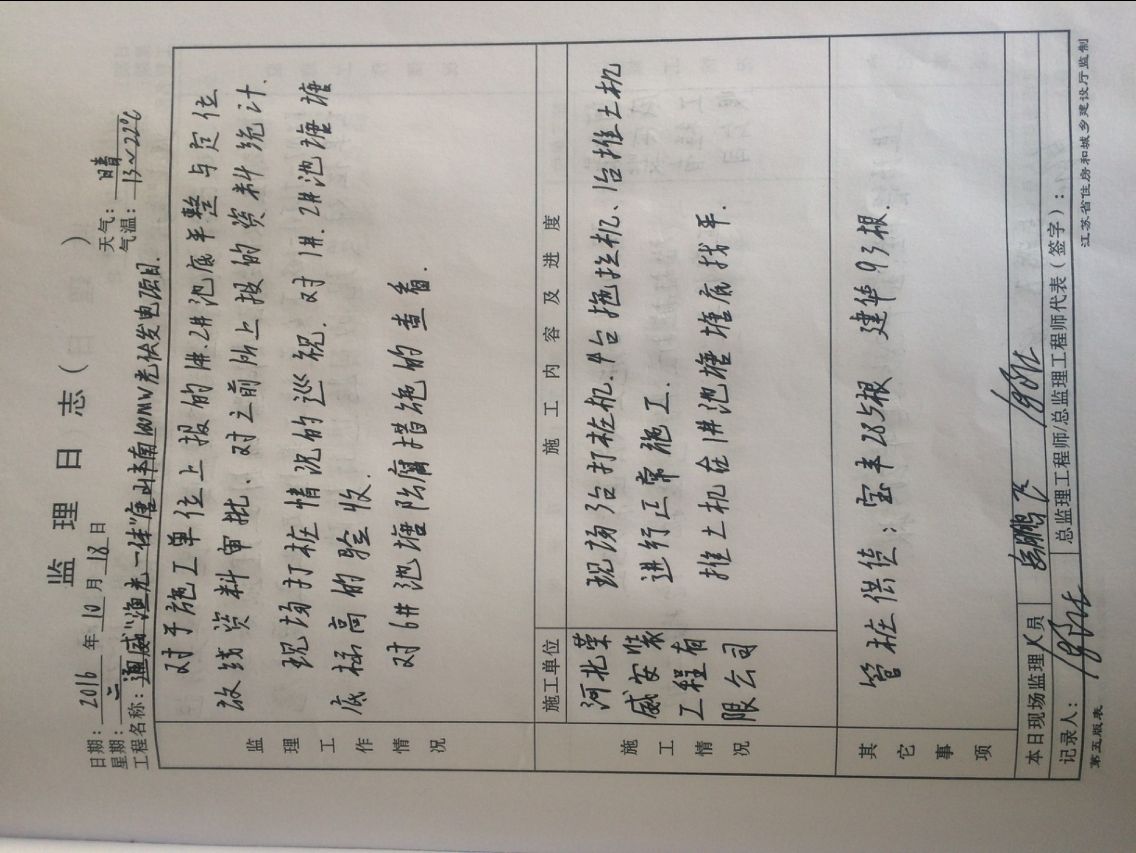 监理日志（日（曙））
日期：2016年10月18日 天气：晴
星期：二 气温：13~22℃
工程名称：通威"渔光一体"唐山丰南100MW光伏发电项目.
监理工作情况
对于施工单位上报的1#.2#池底平整与定位
放线资料审批.对之前所上报的资料统计.
现场打桩情况的巡视.对1#.2#池塘塘
底标高的验收.
对6#池塘防腐措施的查看.
施工情况
施工单位
施工内容及进度
河北荣
威安装
工程有
限公司
打桩机、1台推土机
进行正常施工.
推土机在1#池塘塘底找平.
其它事项
管桩供货：宝丰285根 建华93根
本日现场监理人员
记录人：
总监理工程师/总监理工程师代表（签字）：
第五版表
江苏省住房和城乡建设厅监制